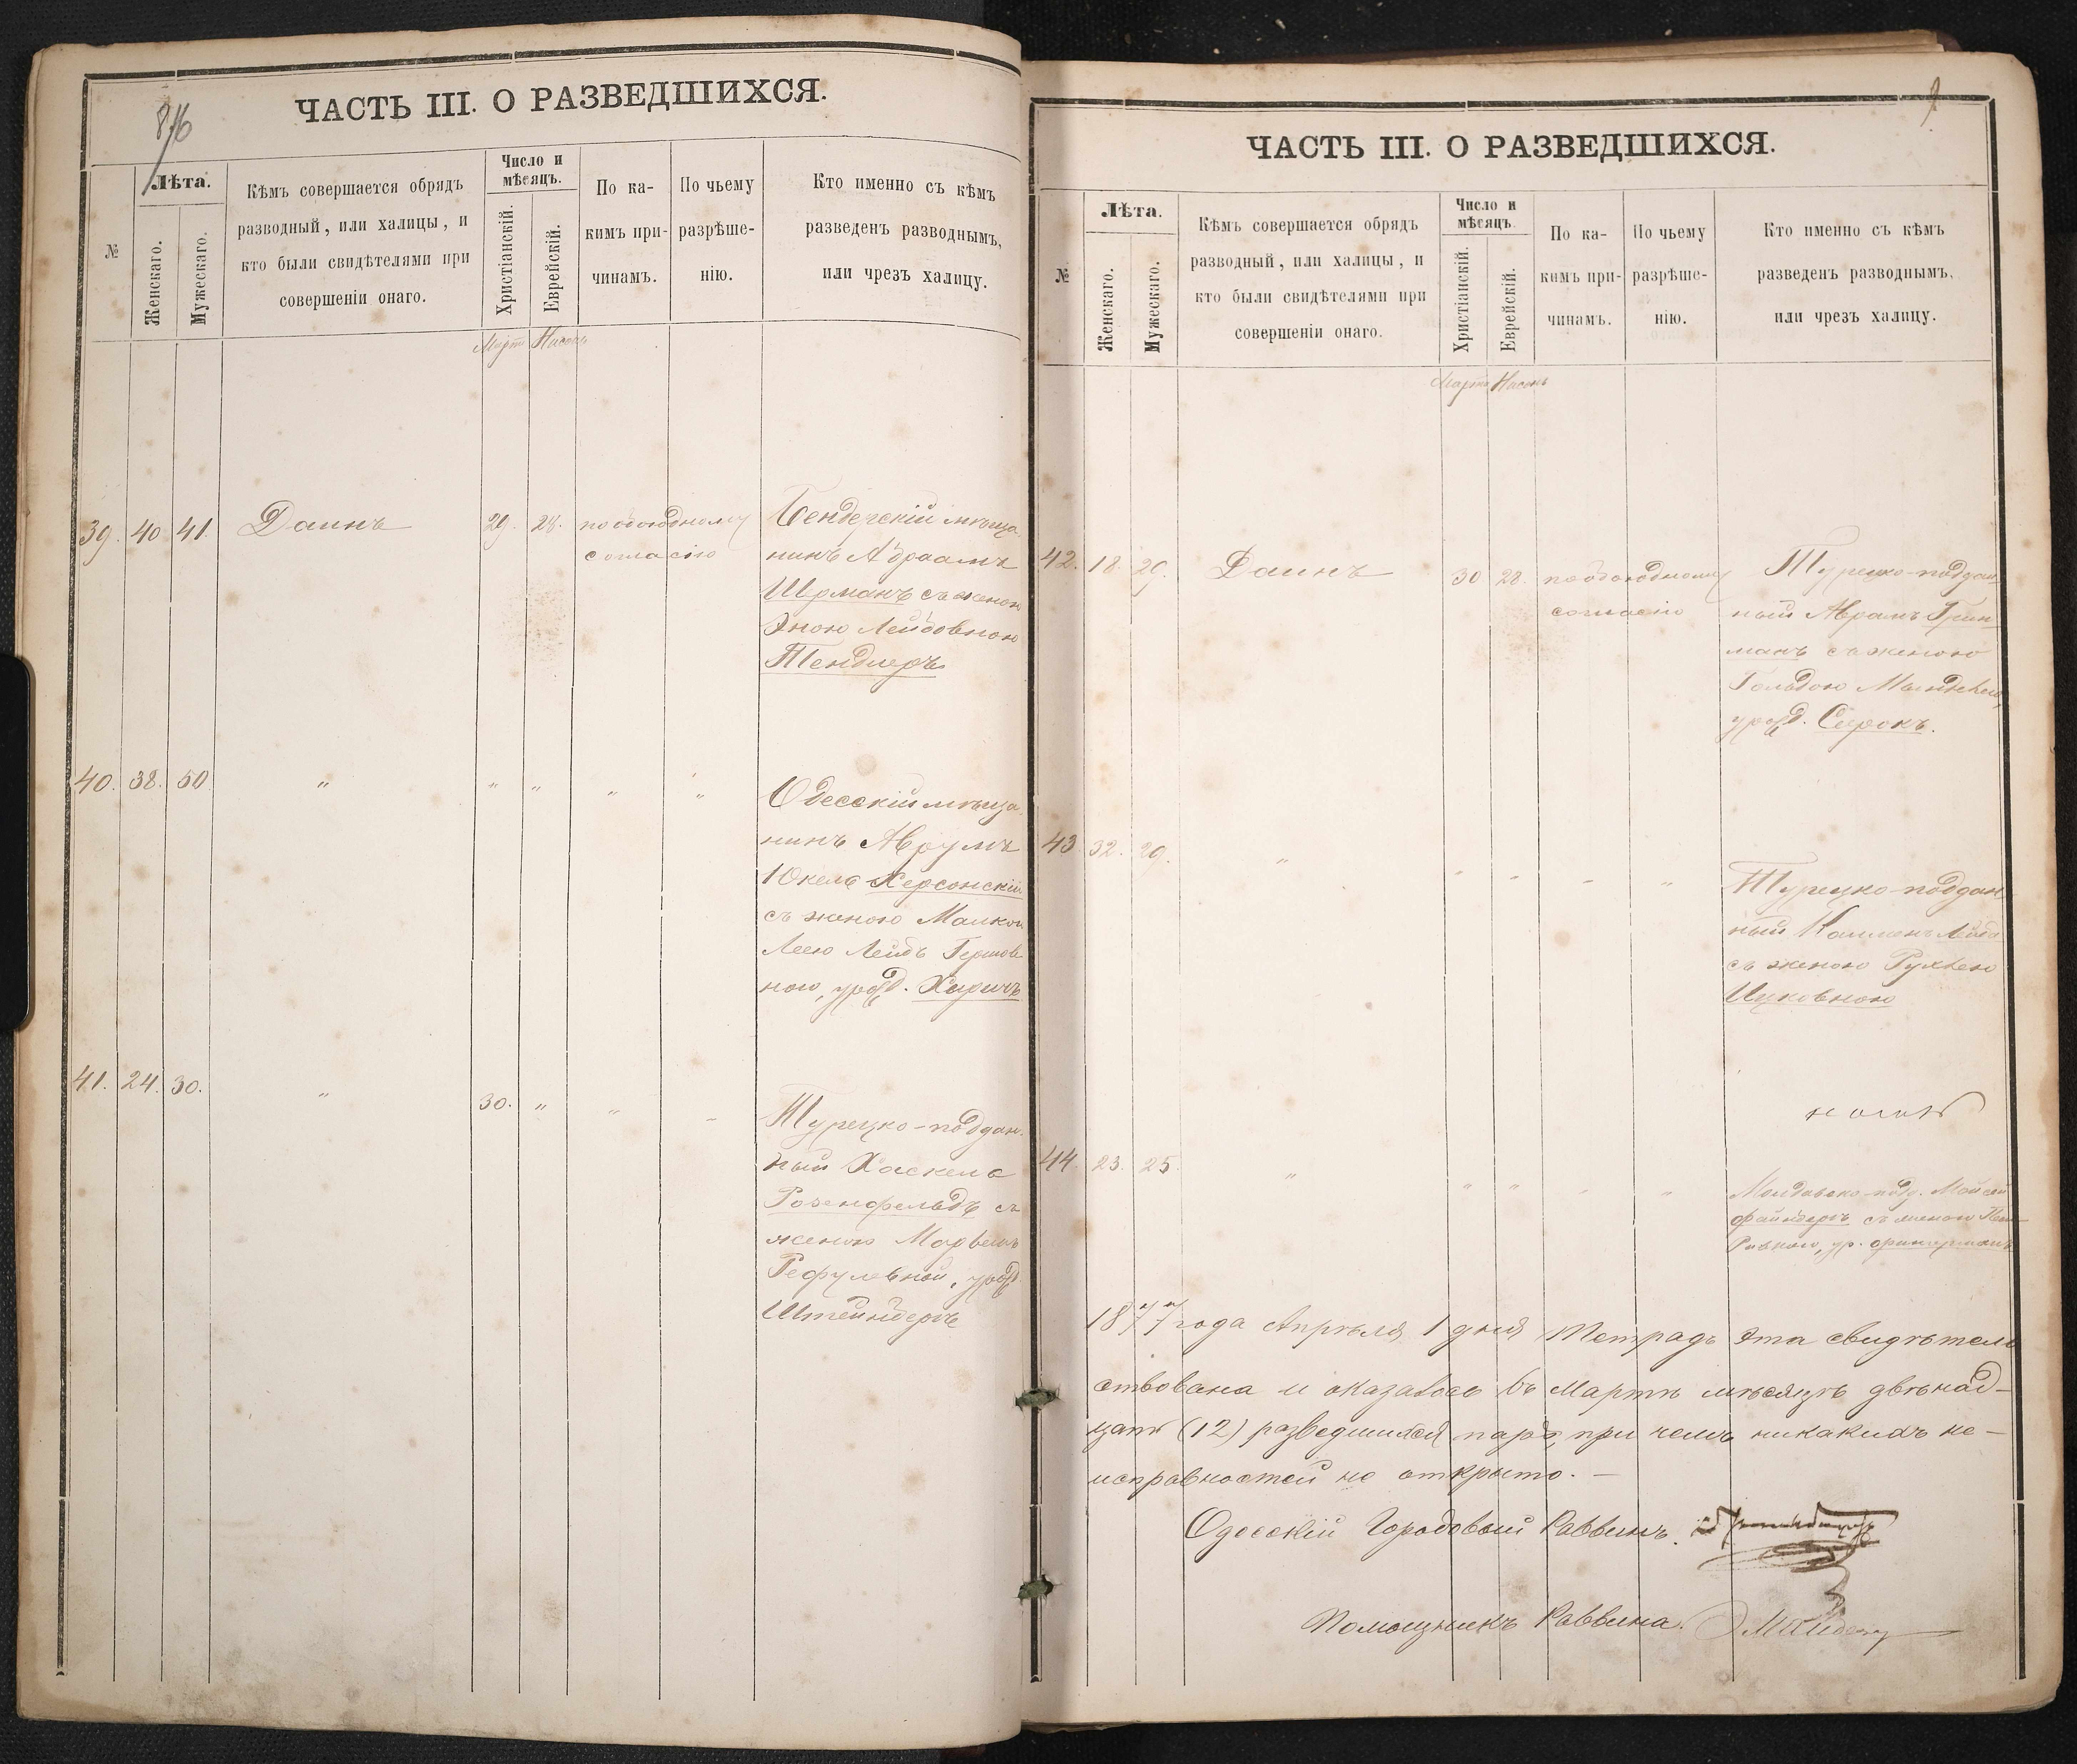 ЧАСТЬ III. О РАЗВЕДШИХСЯ.
№
Лѣта.
Женскаго.
Мужескаго.
Кѣмъ совершается обрядъ
разводный, или халицы, и
кто были свидѣтелями при
совершеніи онаго.
Число и
мѣсяцъ.
Христіанскій.
Еврейскій.
По ка-
кимъ при-
чинамъ.
По чьему
разрѣше-
нію.
Кто именно съ кѣмъ
разведенъ разводнымъ,
или чрезъ халицу.
Мартъ Нисонъ
39. 40 41. Даинъ 29. 28. по обоюдному
согласію
Бендерскій мѣща-
нинъ Абраамъ
Шерманъ съ женою
Эною Лейбовною
Тендлеръ
40. 38. 50 " " " " "
Одесскій мѣща
нинъ Аврумъ
Юкель Херсонскій
съ женою Малкою
Леею Лейбъ Гершов-
ною, урожд.
41. 24. 30. " 30. " " "
Турецко-поддан.
ный Хаскель
Розенфельдъ съ
женою
урожд.
Штейнбергъ
ЧАСТЬ III. О РАЗВЕДШИХСЯ.
№
Лѣта.
Женскаго.
Мужескаго.
Кѣмъ совершается обрядъ
разводный, или халицы, и
кто были свидѣтелями при
совершеніи онаго.
Число и
мѣсяцъ.
Христіанскій.
Еврейскій.
По ка-
кимъ при-
чинамъ.
По чьему
разрѣше-
нію.
Кто именно съ кѣмъ
разведенъ разводнымъ,
или чрезъ халицу.
Мартъ Нисонъ
42. 18. 29. Даинъ 30 28. по обоюдному
согласію
Турецко-поддан
ный Аврамъ Грин-
манъ съ женою
Гольдою
урожд. Сорокъ.
43 32. 29. " " " " "
Турецко-поддан
ный
съ женою Рухлею
Ицковною
44 23. 25. " " " " "
Молдавско-подд. Мойсей
съ женою
Ривкою, ур.
1877 года Апрѣля 1 дня Тетрадь эта свидѣтель
ствована и оказалось въ Мартѣ мѣсяцѣ двѣнад-
цать (12) разведшихся паръ, при чемъ никакихъ не-
исправностей не открыто. —
Одесскій Городовой Раввинъ.
Помощникъ Раввина.